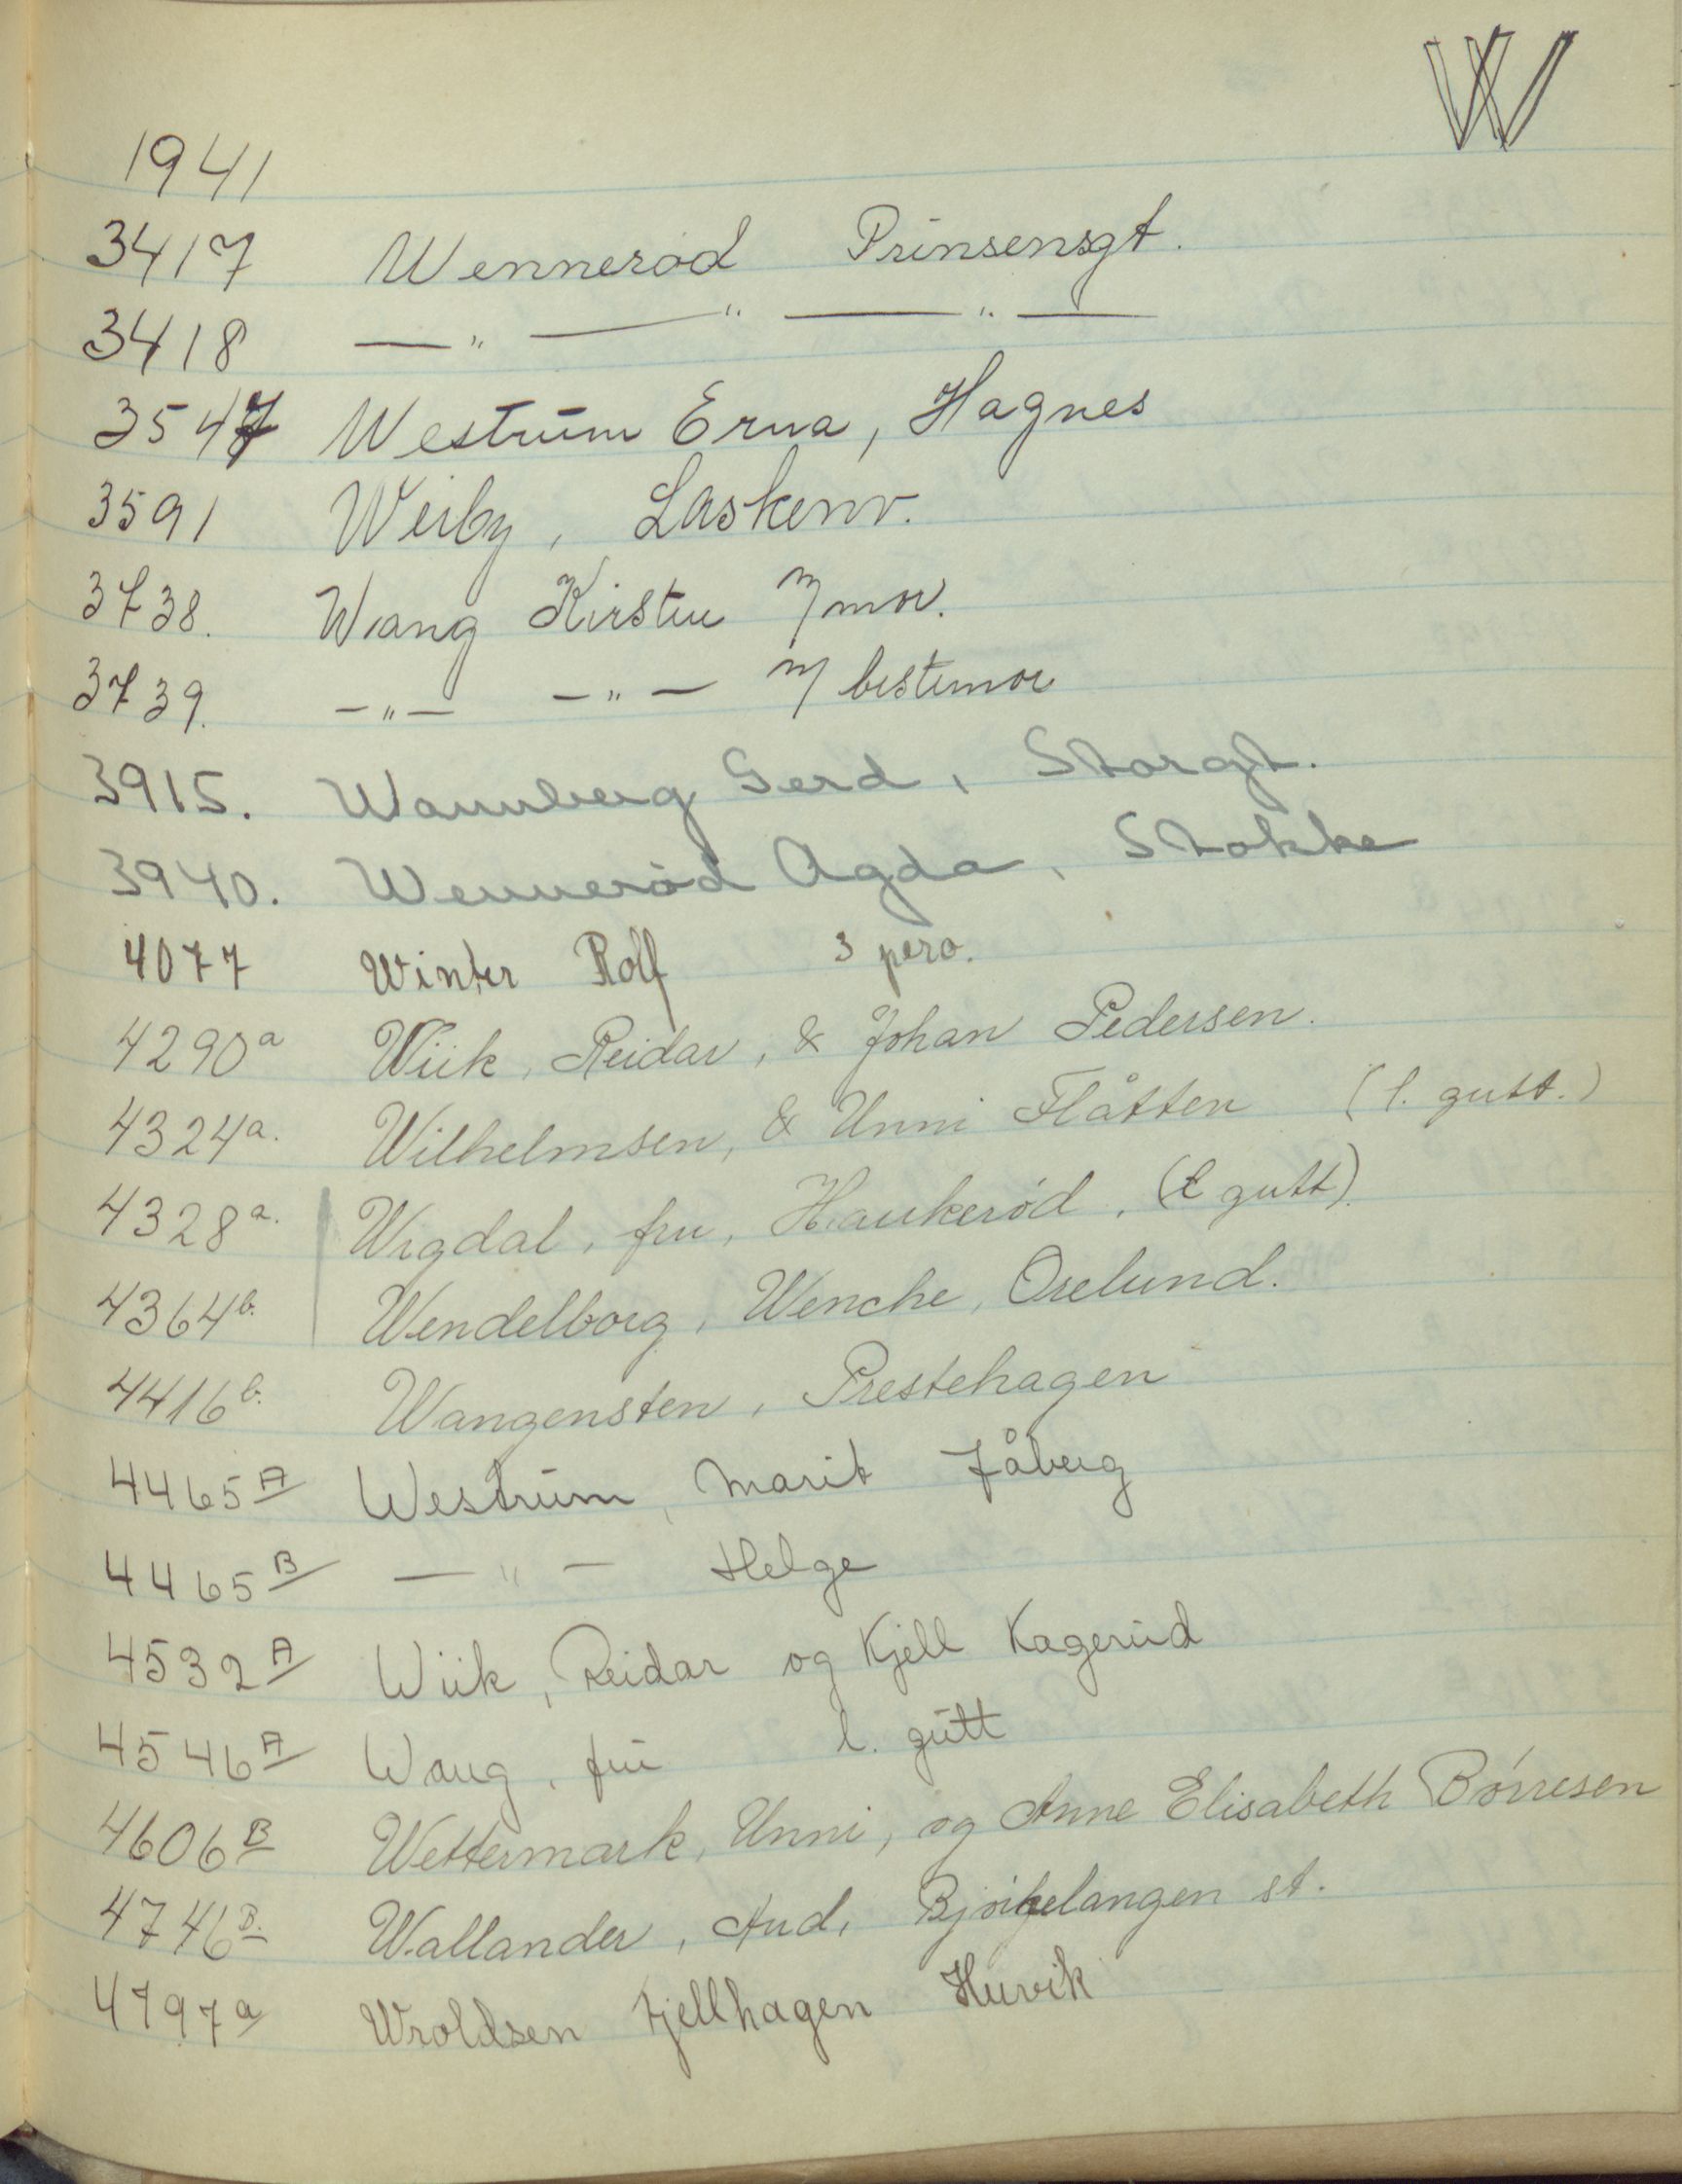 W
1941
3417 Wennerød Prinsensgt.
3418 — " — " —
3547 Westrum Erna, Hagnes
3591 Weiby, Laskenv.
3738. Wang Kirsten m/mor.
3739. —"— —"— m/ bestemor
3915. Wannberg Gerd, Storgt.
3940. Wennerød Agda, Stokke
4077 Winter Rolf 3 pers.
4290a Wiik, Reidar, & Johan Pedersen.
4324a. Wilhelmsen, & Unni Flåtten (l. gutt.)
4328a. Wigdal, fru, Haukerød. (l gutt).
4364b. Wendelborg, Wenche, Orelund.
4416b. Wangensten, Prestehagen
4465A Westrum, Marit Jåberg
4465B — " — Helge
4532A Wiik, Reidar og Kjell Kagerud
4546A Wang, fru l. gutt
4606B Wettermark, Unni, og Anne Elisabeth Børresen
4746B. Wallander, Aud, Bjørkelangen st.
4797a Wroldsen Fjellhagen Husvik